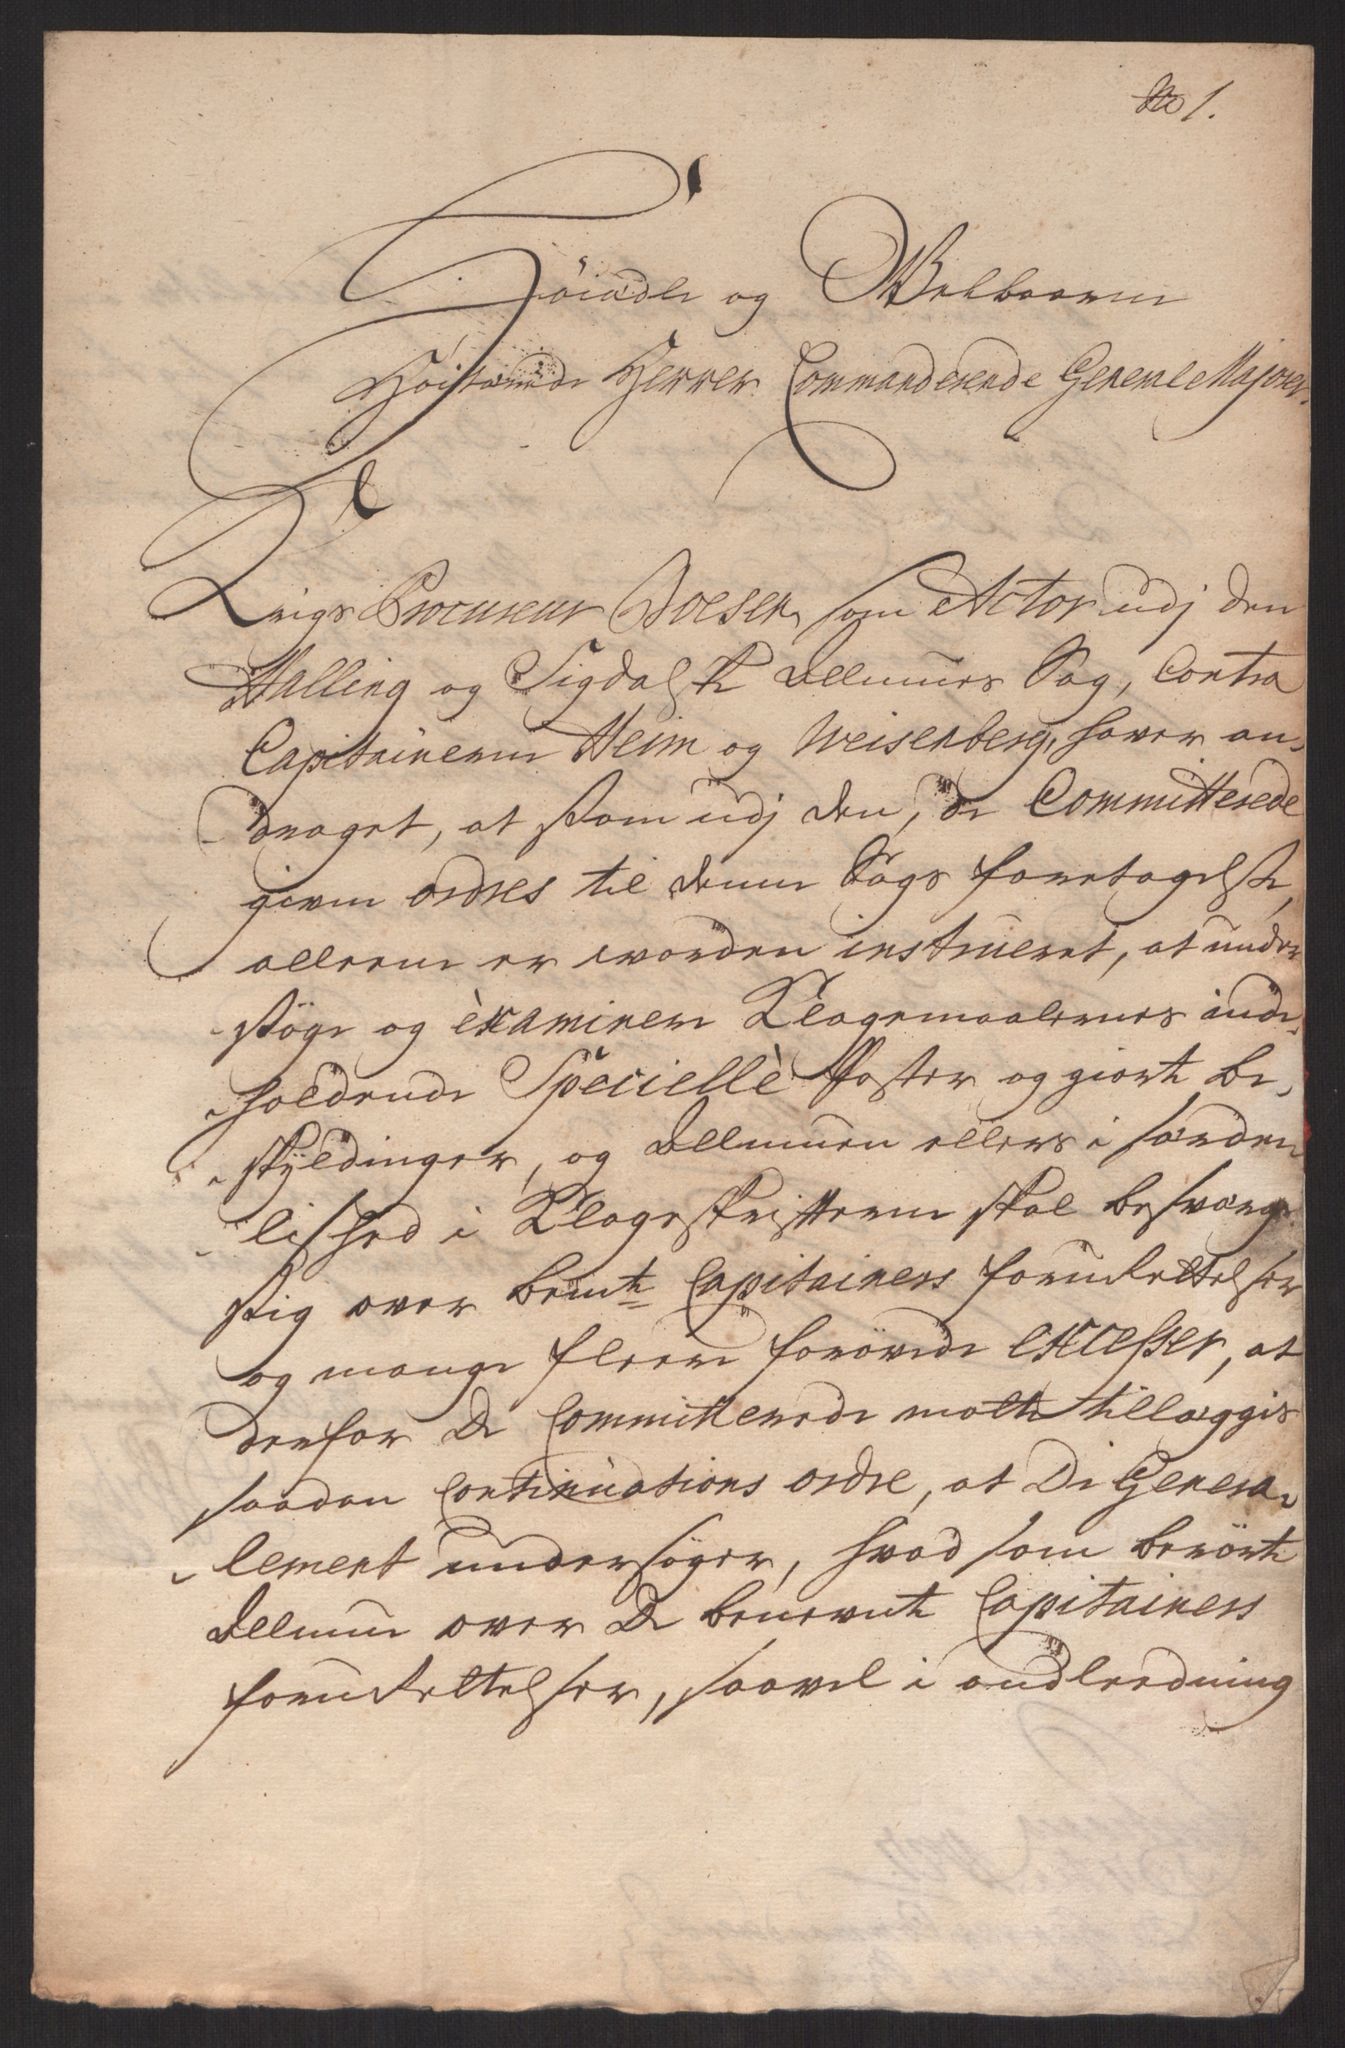 No 1.
Höiædle og Welbaarne
Höistærende Herrer Commanderende General Majorer.
Krigs Procureur Boesen, som Actor udj den
Halling og Sigdalske Allmues Sag, Contra
Capitainerne Heim og Weisenberg, haver an-
draget, at som udj den, de Committerede
given ordres til denne Sags foretagelse,
alleene er worden instrueret, at under
söge og examinere Klagemaalernes inde-
holdende Specielle Poster og giorte be-
skyldinger, og Allmuen ellers i særde-
lished i Klageskrifterne skal besværge
sig over bemte Capitainers forurettelser
og mange fleere forövede excesser, at
derfor De Committerede motte tillæggis
saadan Continuations ordre, at De Genera-
lement undersöger, hvad som berörte
Allmue over De benevnte Capitainers
forurettelser, saavel i andleedning